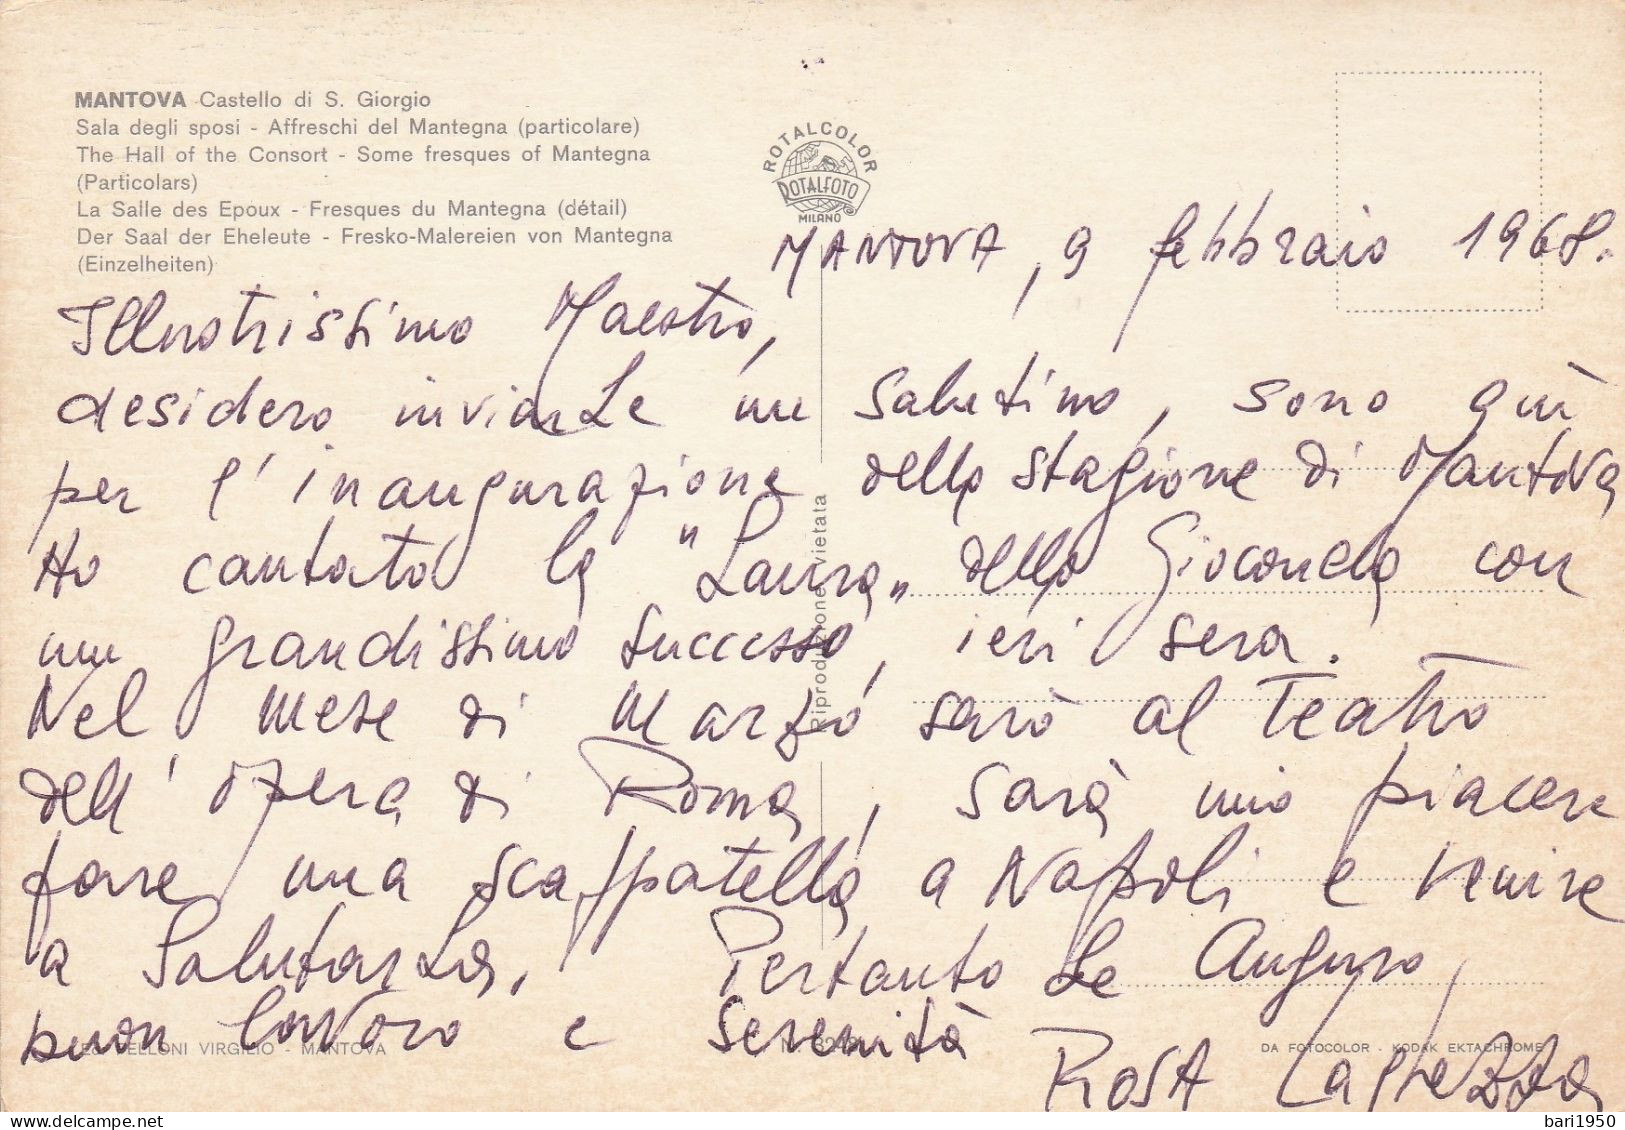 MANTOVA Castello di S. Giorgio
Sala degli sposi - Affreschi del Mantegna (particolare)
The Hall of the Consort - Some fresques of Mantegna
(Particolars)
La Salle des Epoux - Fresques du Mantegna (détail)
Der Saal der Eheleute - Fresko-Malereien von Mantegna
(Einzelheiten)
ROTALCOLOR
ROTALFOTO
MILANO
MANTOVA, 9 febbraio 1968.
Illustrissimo Maestro,
desidero inviarLe un salutino, sono quì
per l'inaugurazione della stagione di Mantova
Ho cantato la "Laura" della Gioconda con
un grandissimo successo, ieri sera.
Nel mese di marzo sarò al Teatro
dell'Opera di Roma, sarà mio piacere
fare una scappatella a Napoli e venire
a SalutarLa. Pertanto Le Auguro,
buon lavoro e serenità
Rosa Laghezza
Riproduzione vietata
Ed. BELLONI VIRGILIO - MANTOVA
DA FOTOCOLOR - KODAK EKTACHROME
delcampe.net
bari1950